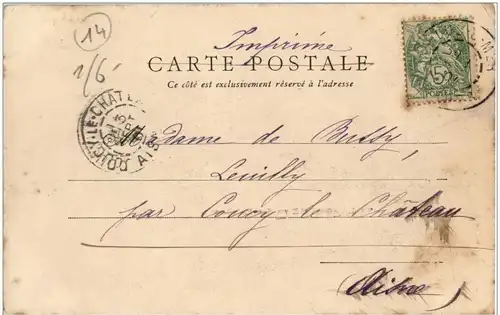 14
1/6
Imprimé
CARTE POSTALE
Ce côté est exclusivement réservé à l'adresse
5
POSTES
COUCY-LE-CHATEAU
AISNE
Madame de Bussy
Leuilly
par Coucy le Château
Aisne